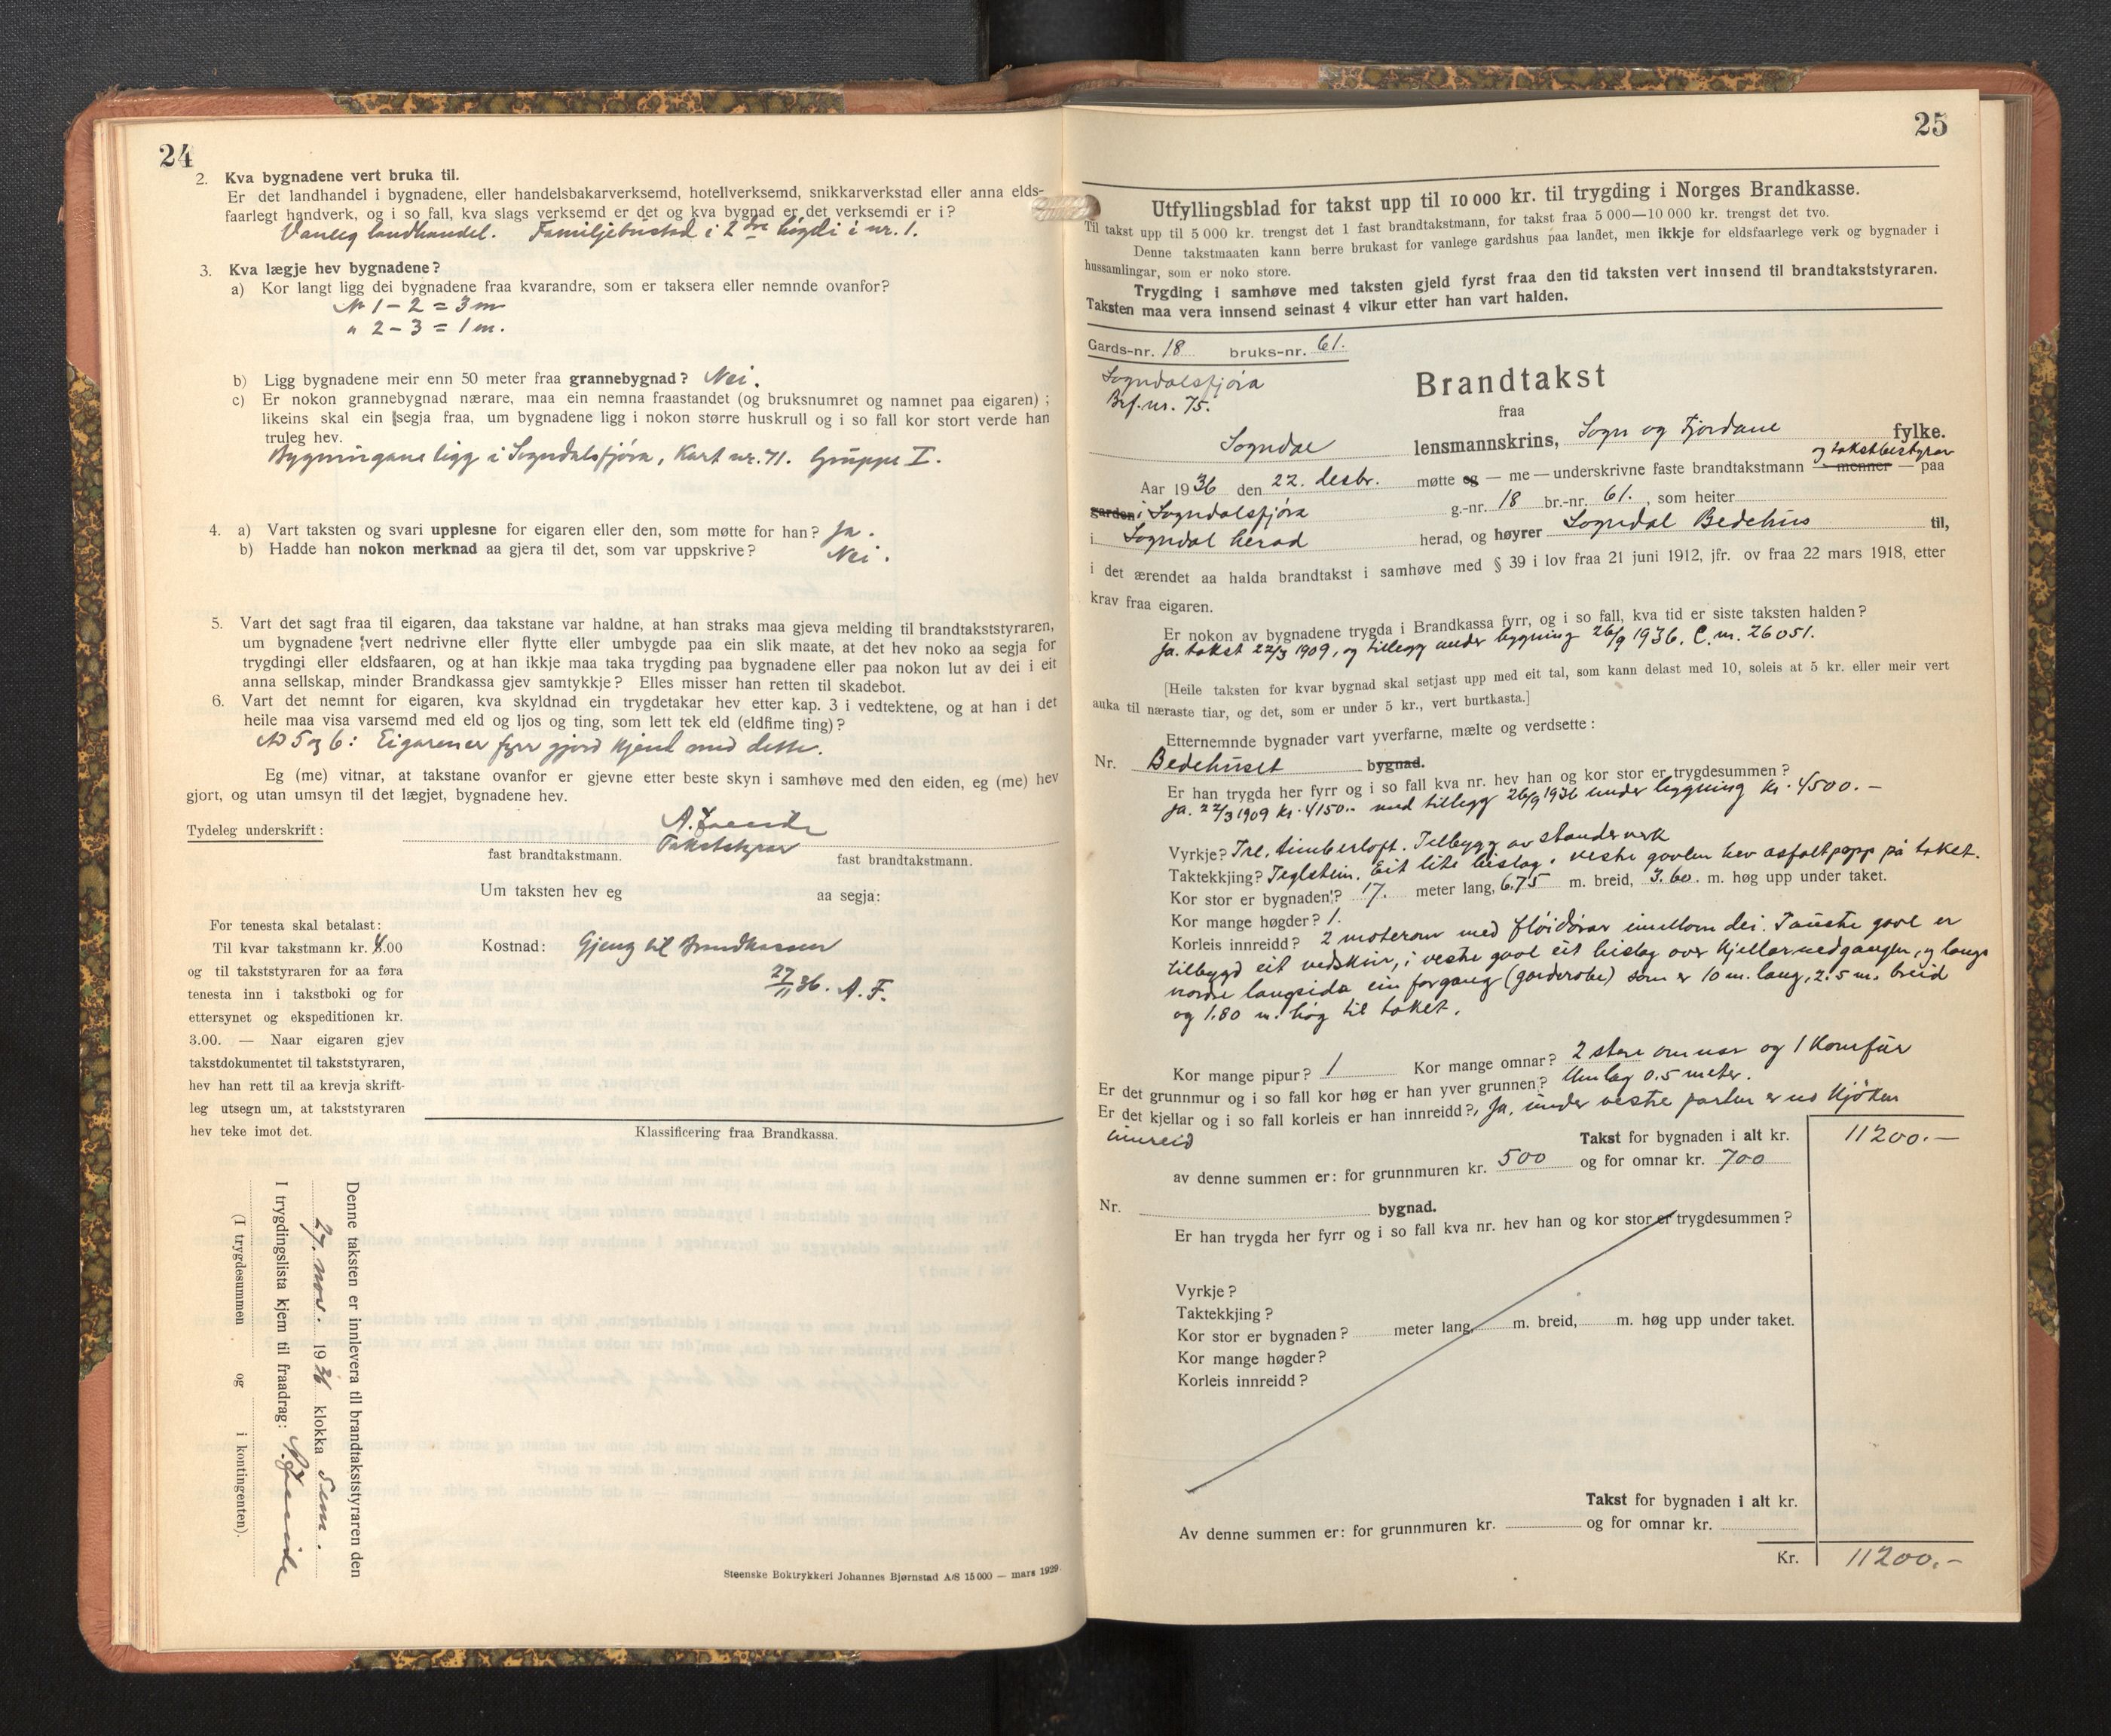 24
2. Kva bygnadene vert bruka til.
Er det landhandel i bygnadene, eller handelsbakarverksemd, hotellverksemd, snikkarverkstad eller anna elds-
faarlegt handverk, og i so fall, kva slags verksemd er det og kva bygnad er det verksemdi er i?
Vanleg landhandel. Familjebustad i 2 dre högdi i nr. 1.
3. Kva lægje hev bygnadene?
a) Kor langt ligg dei bygnadene fraa kvarandre, som er taksera eller nemnde ovanfor?
Nr 1 - 2 = 3 m
" 2 - 3 = 1 m.
b) Ligg bygnadene meir enn 50 meter fraa grannebygnad? Nei.
c) Er nokon grannebygnad nærare, maa ein nemna fraastandet (og bruksnumret og namnet paa eigaren) ;
likeins skal ein segja fraa, um bygnadene ligg i nokon større huskrull og i so fall kor stort verde han
truleg hev.
Bygningane ligg i Sogndalsfjöra, Kart nr. 71. Gruppe I.
4. a) Vart taksten og svari upplesne for eigaren eller den, som møtte for han? Ja.
b) Hadde han nokon merknad aa gjera til det, som var uppskrive? Nei.
5. Vart det sagt fraa til eigaren, daa takstane var haldne, at han straks maa gjeva melding til brandtakststyraren,
um bygnadene vert nedrivne eller flytte eller umbygde paa ein slik maate, at det hev noko aa segja for
trygdingi eller eldsfaaren, og at han ikkje maa taka trygding paa bygnadene eller paa nokon lut av dei i eit
anna sellskap, minder Brandkassa gjev samtykkje? Elles misser han retten til skadebot.
6. Vart det nemnt for eigaren, kva skyldnad ein trygdetakar hev etter kap. 3 i vedtektene, og at han i det
heile maa visa varsemd med eld og ljos og ting, som lett tek eld (eldfime ting)?
Ad 5 og 6: Eigaren er fyrr gjord kjend med dette.
Eg (me) vitnar, at takstane ovanfor er gjevne etter beste skyn i samhøve med den eiden, eg (me) hev
gjort, og utan umsyn til det lægjet, bygnadene hev.
Tydeleg underskrift:
Takststyrar
fast brandtakstmann. fast brandtakstmann.
Um taksten hev eg aa segja:
For tenesta skal betalast:
Til kvar takstmann kr. 4.00
og til takststyraren for aa føra
tenesta inn i takstboki og for
ettersynet og ekspeditionen kr.
3.00. — Naar eigaren gjev
takstdokumentet til takststyraren,
hev han rett til aa krevja skrift-
leg utsegn um, at takststyraren
hev teke imot det.
Kostnad: Gjeng til Brandkassen
27/11 36. A. F.
Klassificering fraa Brandkassa.
Denne taksten er innlevera til brandtakststyraren den
27. nov. 1936 klokka 5 em.
I trygdingslista kjem til fraadrag:
(I trygdesummen og i kontingenten).
Steenske Boktrykkeri Johannes Bjørnstad A/S 15 000 — mars 1929.
25
Utfyllingsblad for takst upp til 10 000 kr. til trygding i Norges Brandkasse.
Til takst upp til 5 000 kr. trengst det 1 fast brandtakstmann, for takst fraa 5 000—10 000 kr. trengst det tvo.
Denne takstmaaten kann berre brukast for vanlege gardshus paa landet, men ikkje for eldsfaarlege verk og bygnader i
hussamlingar, som er noko store.
Trygding i samhøve med taksten gjeld fyrst fraa den tid taksten vert innsend til brandtakststyraren.
Taksten maa vera innsend seinast 4 vikur etter han vart halden.
Gards-nr. 18 bruks-nr. 61.
Sogndalsfjöra
Brf. nr. 75.
Brandtakst
fraa
Sogndal lensmannskrins, Sogn og Fjordane fylke.
og takstbestyrar
Aar 1936 den 22. desbr. møtte eg — me — underskrivne faste brandtakstmann — menner — paa
garden i Sogndalsfjöra g.-nr. 18 br.-nr. 61. , som heiter
i Sogndal herad herad, og høyrer Sogndal Bedehus til,
i det ærendet aa halda brandtakst i samhøve med § 39 i lov fraa 21 juni 1912, jfr. ov fraa 22 mars 1918, etter
krav fraa eigaren.
Er nokon av bygnadene trygda i Brandkassa fyrr, og i so fall, kva tid er siste taksten halden?
Ja. takst 22/3 1909, og tillegg under bygning 26/9 1936. C. nr. 26051.
[Heile taksten for kvar bygnad skal setjast upp med eit tal, som kann delast med 10, soleis at 5 kr. eller meir vert
auka til næraste tiar, og det, som er under 5 kr., vert burtkasta.]
Etternemnde bygnader vart yverfarne, mælte og verdsette :
Nr. Bedehuset bygnad.
Er han trygda her fyrr og i so fall kva nr. hev han og kor stor er trygdesummen?
Ja. 22/3 1909 kr. 4150.- med tillegg 26/9 1936 under bygning kr. 4500.-
Vyrkje? Tre, timberloft. Tilbygg av standerverk
Taktekkjing? Teglstein. Eit lite bislag i vestre gavlen hev asfaltpapp på taket.
Kor stor er bygnaden? 17. meter lang, 6.75 m. breid, 3.60. m. høg upp under taket.
Kor mange høgder? 1.
Korleis innreidd? 2 møterom med fløidörar imellom dei. I austre gavl er
tilbygd eit vedskur, i vestre gavl eit bislag over kjellarnedgangen, og langs
nordre langsida ein forgang (garderobe) som er 10 m. lang, 2.5 m. breid
og 1.80 m. høg til taket.
Kor mange pipur? 1 Kor mange omnar? 2 store omnar og 1 Komfür
Er det grunnmur og i so fall kor høg er han yver grunnen? Umlag 0.5 meter.
Er det kjellar og i so fall korleis er han innreidd? Ja, under vestre parten er no kjöken
innreid
Takst for bygnaden i alt kr. 11200.—
av denne summen er: for grunnmuren kr. 500 og for omnar kr. 700
Nr. bygnad.
Er han trygda her fyrr og i so fall kva nr. hev han og kor stor er trygdesummen?
Vyrkje?
Taktekkjing?
Kor stor er bygnaden? meter lang, m. breid, m. høg upp under taket.
Kor mange høgder?
Korleis innreidd?
Takst for bygnaden i alt kr.
Av denne summen er: for grunnmuren kr. og for omnar kr.
Kr. 11200.-